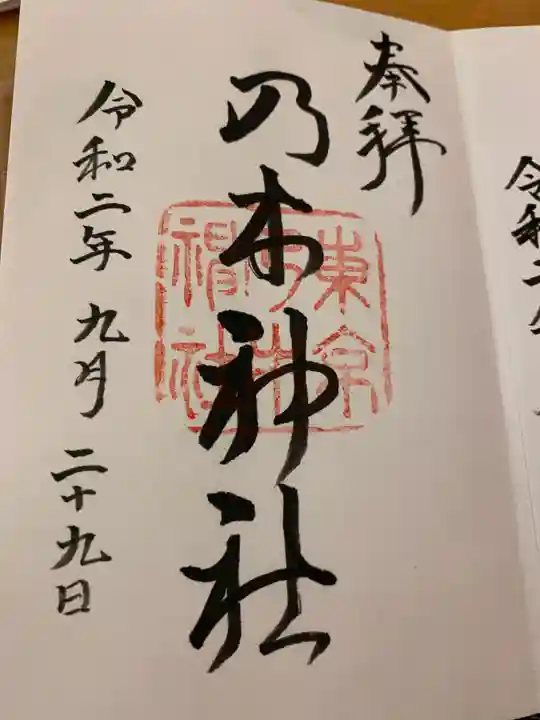 奉拝
乃木神社
東京
乃木
神社
令和二年九月二十九日